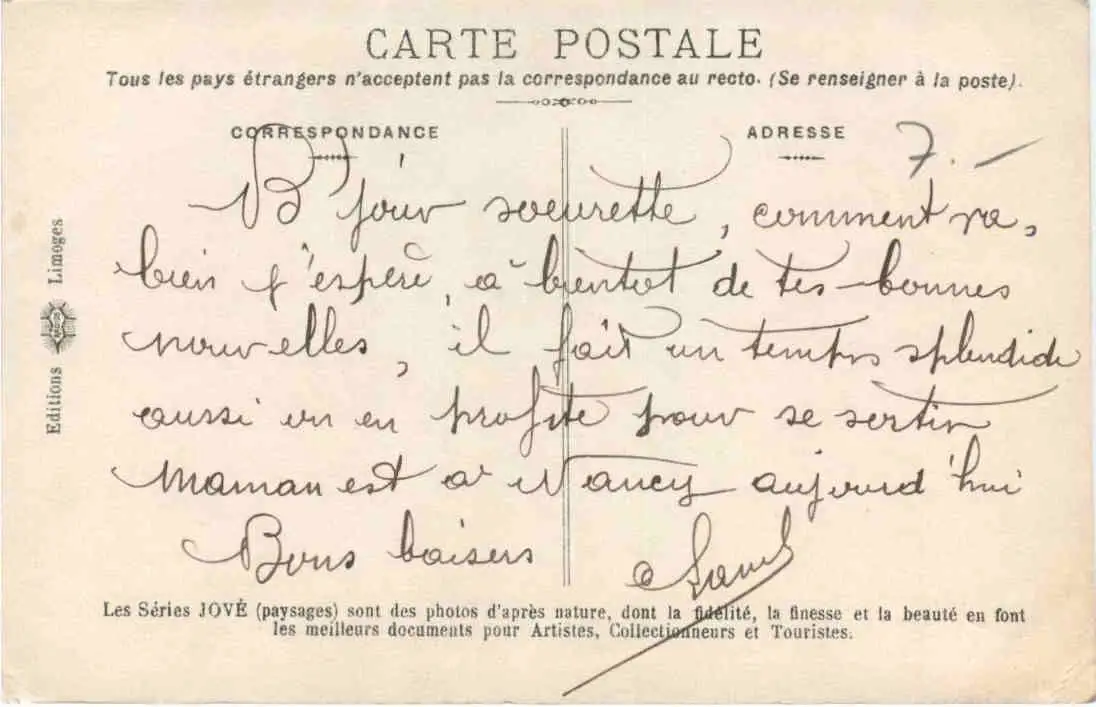 CARTE POSTALE
Tous les pays étrangers n'acceptent pas la correspondance au recto. (Se renseigner à la poste).
CORRESPONDANCE
ADRESSE
7.-
Bjour soeurette, comment va,
bien j'espère, à bientot de tes bonnes
nouvelles, il fait un temps splendide
aussi on en profite pour se sortir
Maman est à Nancy aujourd'hui
Bons baisers
Editions Limoges
Les Séries JOVÉ (paysages) sont des photos d'après nature, dont la fidélité, la finesse et la beauté en font
les meilleurs documents pour Artistes, Collectionneurs et Touristes.